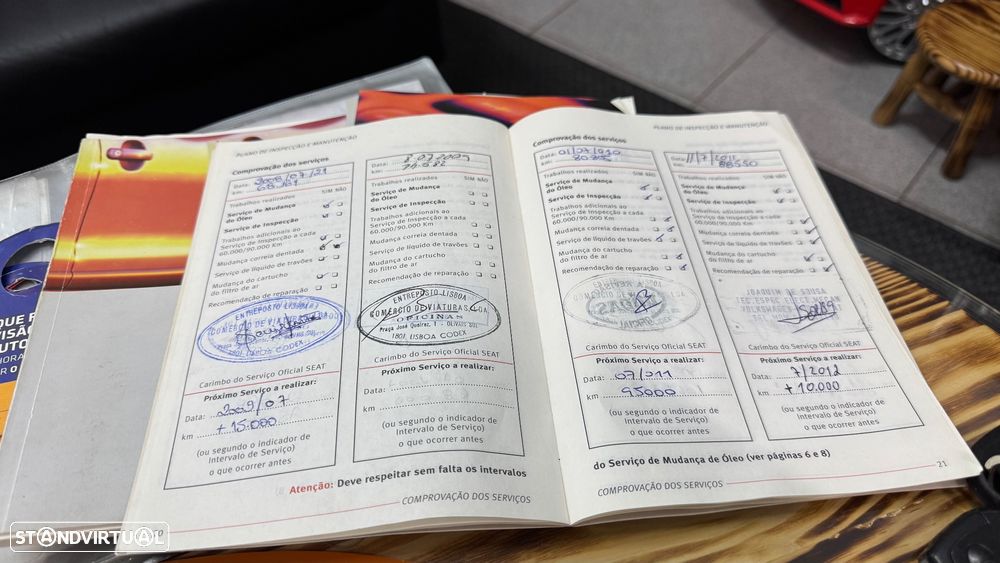 PLANO DE INSPECÇÃO E MANUTENÇÃO
Comprovação dos serviços
Data: 2008/07/21
km:
Trabalhos realizados SIM NÃO
Serviço de Mudança
do Óleo
Serviço de Inspecção
Trabalhos adicionais ao
Serviço de Inspecção a cada
60.000/90.000 Km
Mudança correia dentada
Serviço de líquido de travões
Mudança do cartucho
do filtro de ar
Recomendação de reparação
ENTREPOSTO LISBOA
COMÉRCIO DE VIATURAS
1801 LISBOA CODEX
Carimbo do Serviço Oficial SEAT
Próximo Serviço a realizar:
Data: 2009/07
km +15.000
(ou segundo o indicador de
Intervalo de Serviço)
o que ocorrer antes
Data:
km:
Trabalhos realizados SIM NÃO
Serviço de Mudança
do Óleo
Serviço de Inspecção
Trabalhos adicionais ao
Serviço de Inspecção a cada
60.000/90.000 Km
Mudança correia dentada
Serviço de líquido de travões
Mudança do cartucho
do filtro de ar
Recomendação de reparação
ENTREPOSTO LISBOA
COMÉRCIO DE VIATURAS, LDA
OFICINAS
Praça José Queiroz, 1 - OLIVAIS SUL
1801 LISBOA CODEX
Carimbo do Serviço Oficial SEAT
Próximo Serviço a realizar:
Data:
km
(ou segundo o indicador de
Intervalo de Serviço)
o que ocorrer antes
Atenção: Deve respeitar sem falta os intervalos
COMPROVAÇÃO DOS SERVIÇOS
PLANO DE INSPECÇÃO E MANUTENÇÃO
Comprovação dos serviços
Data: 01/07/010
km:
Trabalhos realizados SIM NÃO
Serviço de Mudança
do Óleo
Serviço de Inspecção
Trabalhos adicionais ao
Serviço de Inspecção a cada
60.000/90.000 Km
Mudança correia dentada
Serviço de líquido de travões
Mudança do cartucho
do filtro de ar
Recomendação de reparação
Carimbo do Serviço Oficial SEAT
Próximo Serviço a realizar:
Data: 07/011
km 95000
(ou segundo o indicador de
Intervalo de Serviço)
o que ocorrer antes
Data: 11/7/2011
km: 88550
Trabalhos realizados SIM NÃO
Serviço de Mudança
do Óleo
Serviço de Inspecção
Trabalhos adicionais ao
Serviço de Inspecção a cada
60.000/90.000 Km
Mudança correia dentada
Serviço de líquido de travões
Mudança do cartucho
do filtro de ar
Recomendação de reparação
JOAQUIM DE SOUSA
Carimbo do Serviço Oficial SEAT
Próximo Serviço a realizar:
Data: 7/2012
km +10.000
(ou segundo o indicador de
Intervalo de Serviço)
o que ocorrer antes
do Serviço de Mudança de Óleo (ver páginas 6 e 8)
21
COMPROVAÇÃO DOS SERVIÇOS
STANDVIRTUAL